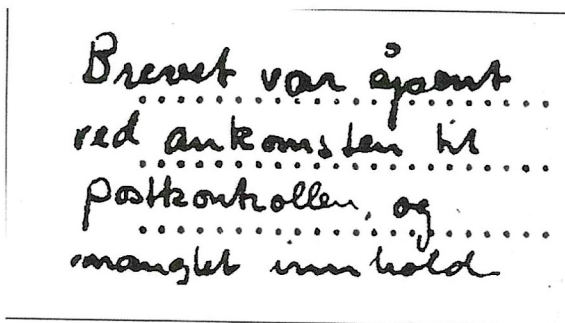 Brevet var åpent
ved ankomsten til
postkontrollen, og
manglet innhold